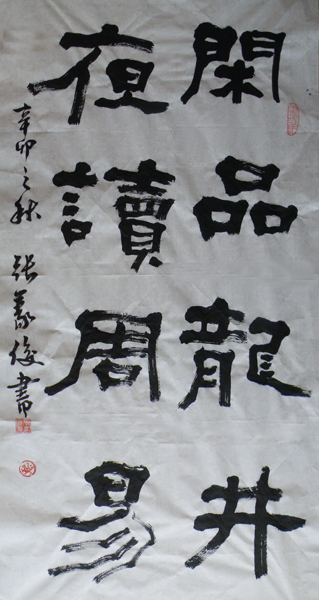 閑品龍井
夜讀周易
辛卯之秋 張義俊書